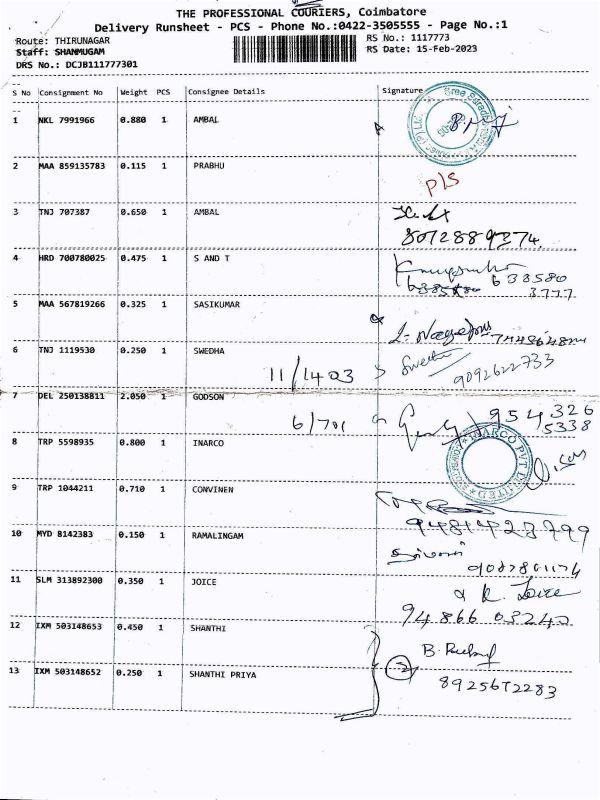 THE PROFESSIONAL COURIERS, Coimbatore
Delivery Runsheet - PCS - Phone No.:0422-3505555 - Page No.:1
Route: THIRUNAGAR RS No.: 1117773
Staff: SHANMUGAM RS Date: 15-Feb-2023
DRS No.: DCJB111777301
S No Consignment No Weight PCS Consignee Details Signature
1 NKL 7991966 0.880 1 AMBAL
2 MAA 859135783 0.115 1 PRABHU
P/S
3 TNJ 707387 0.650 1 AMBAL
8072889374
4 HRD 700780025 0.475 1 S AND T
633580
3777
5 MAA 567819266 0.325 1 SASIKUMAR
6 TNJ 1119530 0.250 1 SWEDHA
11/1403 Swetha 9092622733
7 DEL 250138811 2.050 1 GODSON
6/701 954 326
5338
8 TRP 5598935 0.800 1 INARCO
INARCO PVT LIMITED
9 TRP 1044211 0.710 1 CONVINEN
10 MYD 8142383 0.150 1 RAMALINGAM
11 SLM 313892300 0.350 1 JOICE
K. Joice
94866 03240
12 IXM 503148653 0.450 1 SHANTHI
13 IXM 503148652 0.250 1 SHANTHI PRIYA
2
8925672283